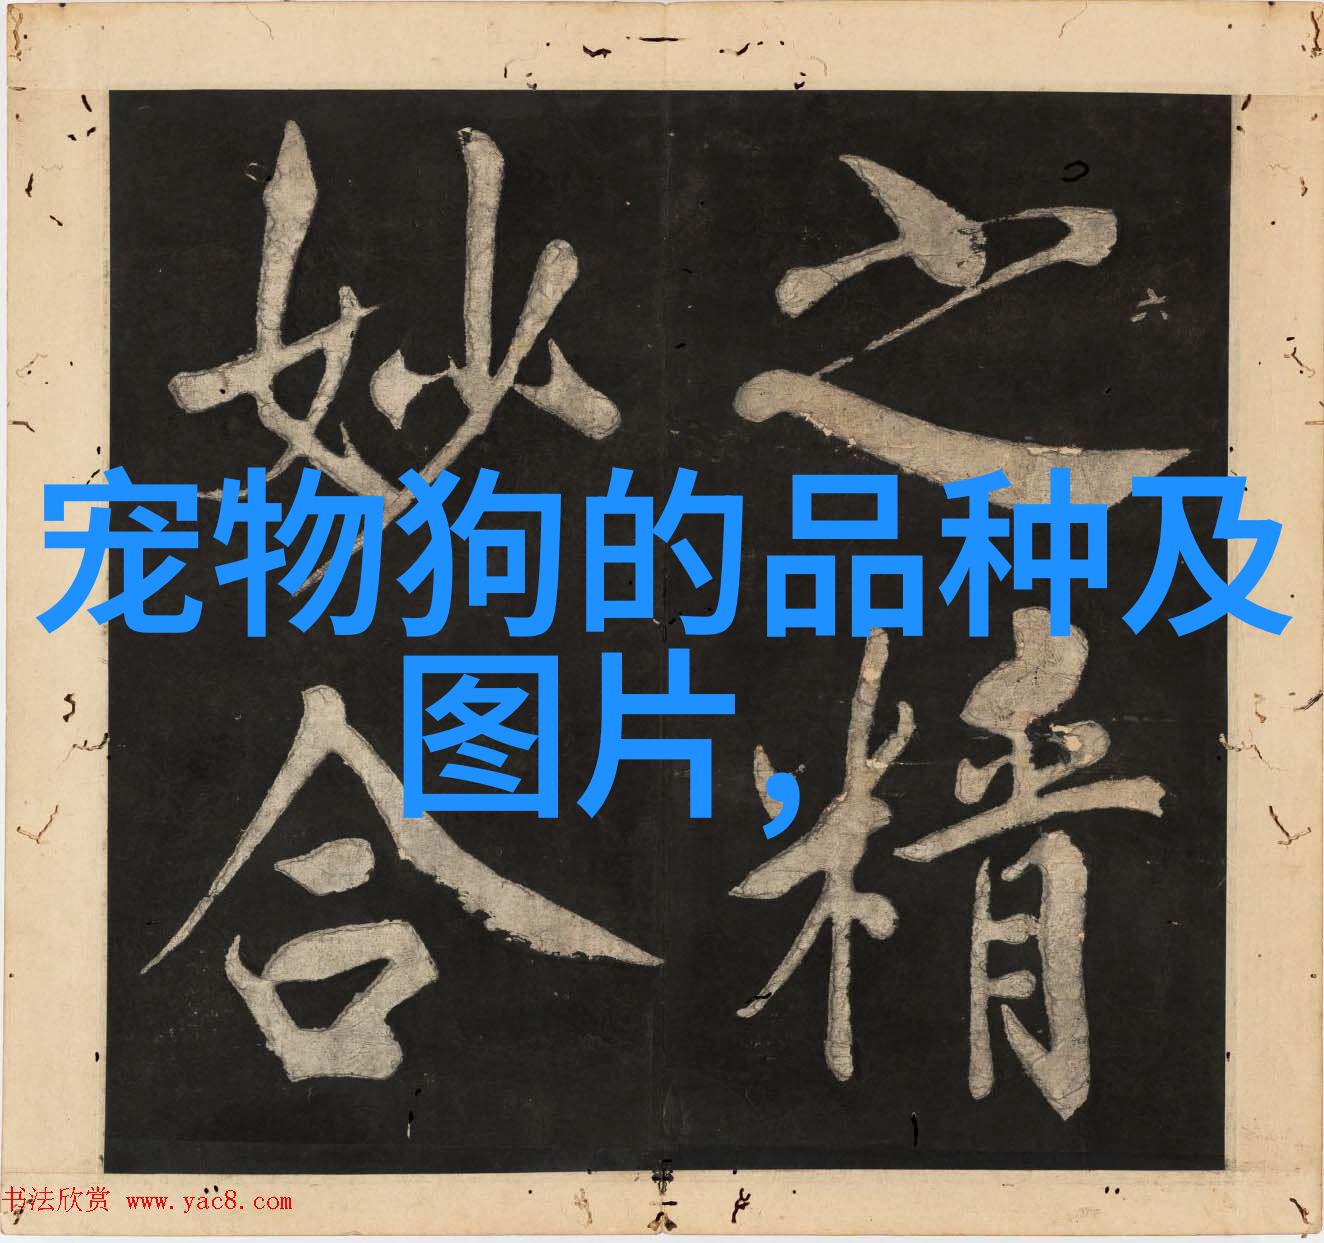 之精
妙合
六
宠物狗的品种及
图片,
书法欣赏 www.yac8.com